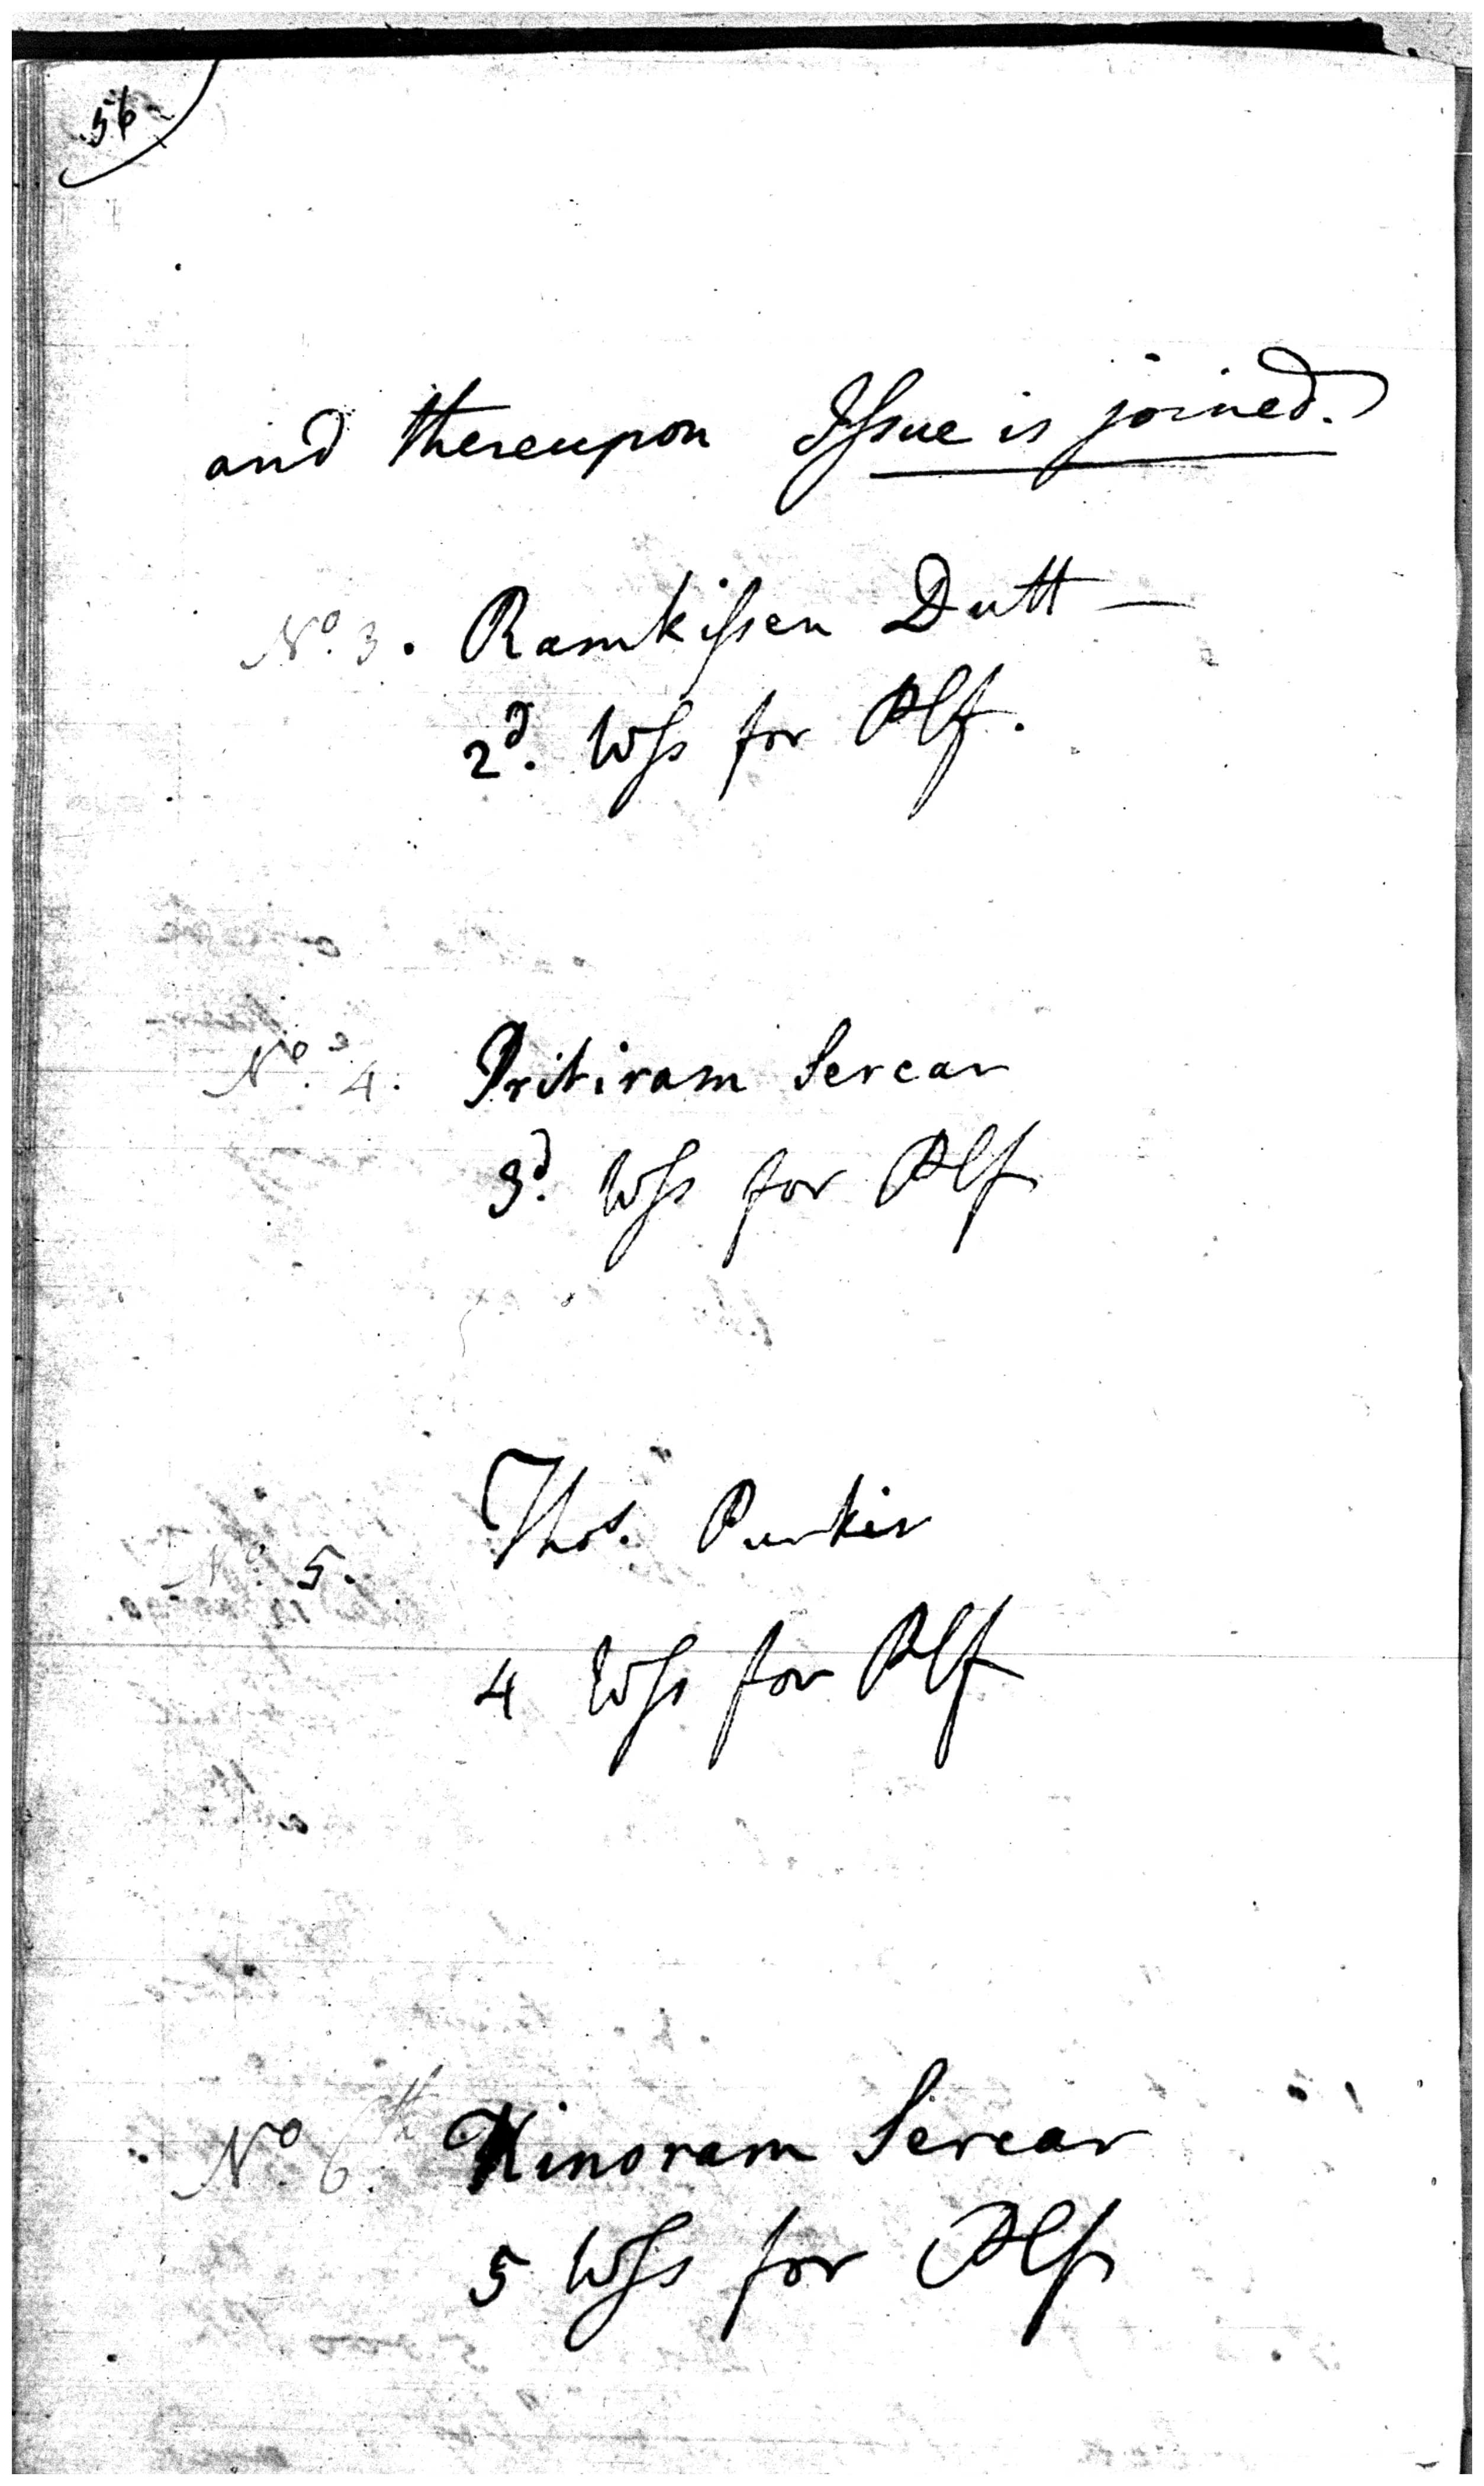 56
and thereupon Issue is joined.
No. 3. Ramkissen Dutt —
2d. Wss for Plf.
No. 4. Pritiram Sercar
3d. Wss for Plf
Thos. Purkis
No. 5.
4 Wss for Plf
No. 6th Kinoram Sercar
5 Wss for Plf